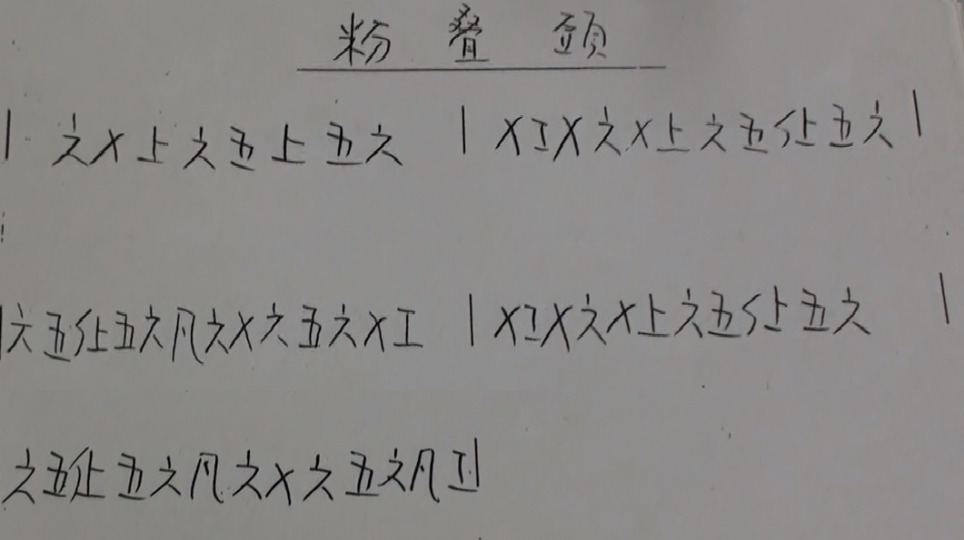 粉叠頭
| 六X上六五上五六 | X工X六X上六五仩五六 |
| 六五仩五六凡六X六五六X工 | X工X六X上六五仩五六 |
六五仩五六凡六X六五六凡工 |